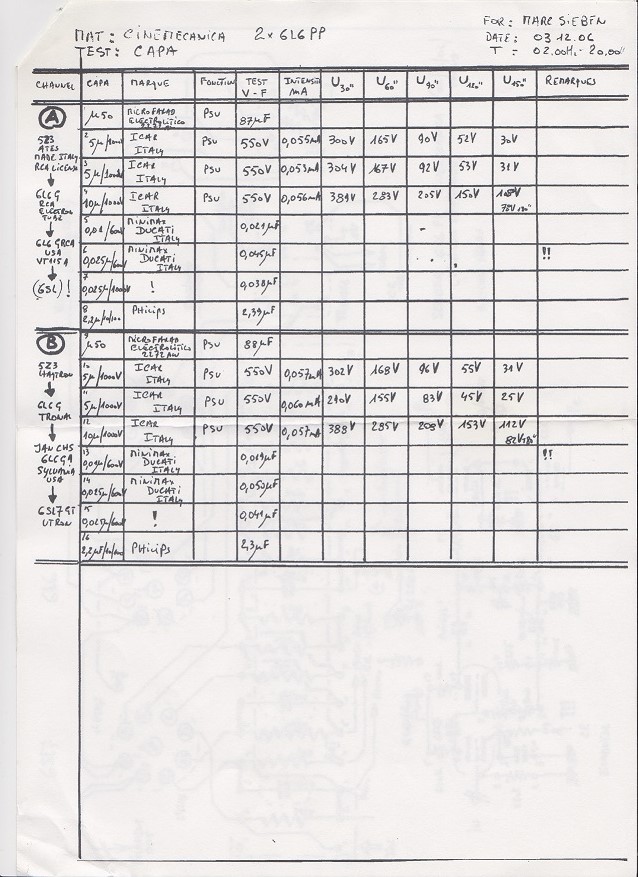 MAT: CINEMECANICA 2x6L6PP
TEST: CAPA
FOR: MARC SIEBEN
DATE: 03.12.06
CHANNEL CAPA MARQUE FONCTION TEST V-F INTENSITÉ mA U30" U60" U90" U120" U150" REMARQUES
A
5Z3
ATES
MADE ITALY
RCA LICENSE
6L6G
RCA
6L6 GRCA
USA
VT115A
(6SL)!
µ50 MICROFARAD ELECTROLITICO PSU 87µF
2 5µ/1000V ICAR ITALY PSU 550V 0,055mA 300V 165V 90V 52V 30V
3 5µ/1000V ICAR ITALY PSU 550V 0,053mA 304V 167V 92V 53V 31V
4 10µ/1000V ICAR ITALY PSU 550V 0,056mA 389V 283V 205V 150V 108V
78V 180"
5 0,01/600V MINIMAX DUCATI ITALY 0,021µF -
6 0,025µ/600V MINIMAX DUCATI ITALY 0,045µF !!
7 0,025µ/1000V ! 0,038µF
8 PHILIPS 2,39µF
B
5Z3
6L6G
TRONAL
JAN CHS
6L6GA
SYLVANIA
USA
6SL7GT
9 µ50 MICROFARAD ELECTROLITICO PSU 88µF
10 5µ/1000V ICAR ITALY PSU 550V 0,057mA 302V 168V 96V 55V 31V
11 5µ/1000V ICAR ITALY PSU 550V 0,060mA 290V 155V 83V 45V 25V
12 10µ/1000V ICAR ITALY PSU 550V 0,057mA 388V 285V 208V 153V 112V
82V 180"
13 0,01µ/600V MINIMAX DUCATI ITALY 0,019µF !!
14 0,025µ/600V MINIMAX DUCATI ITALY 0,050µF
15 ! 0,041µF
16 PHILIPS 2,3µF